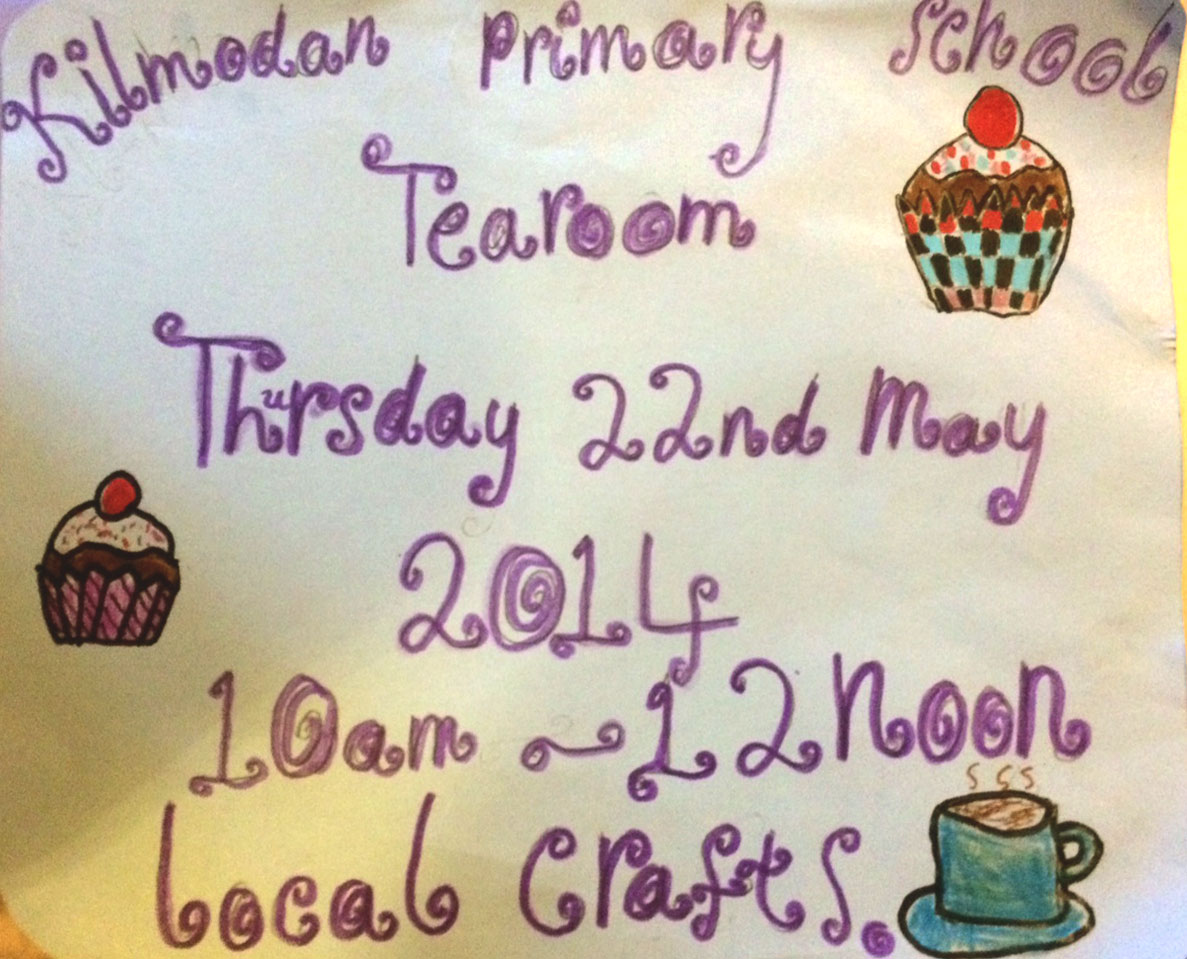 Kilmodan Primary School
Tearoom
Thursday 22nd May
2014
10am ~ 12 Noon
Local Crafts.